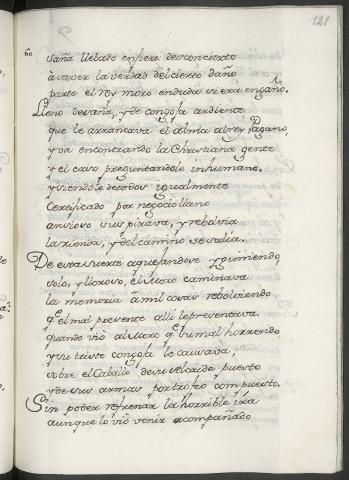 121
60
saña llebado en fiero desconcierto
à saver la verdad del cierto daño
parte el rey moro en duda si era engaño.
Lleno de saña, y de congoja ardiente
que le arrancava el alma al rey Pagano,
y va encontrando la Christiana gente
y el caso preguntandole inhumano.
y siendole de todos igualmente
certificado por negocio llano
ansioso suspirava, y rebolvia
la rienda, y del camino se salia.
De esta suerte aquejandose y gimiendo,
solo, y lloroso, el Moro caminava
la memoria à mil cosas rebolviendo
qe. el mal presente alli le presentava.
quando viò al Moro qe. su mal horrendo
y su triste congoja le causava,
sobre el Caballo de su Alcaide puesto
y de sus armas por trofeo compuesto.
Sin poder refrenar la horrible ira
aunque lo viò venir acompañado